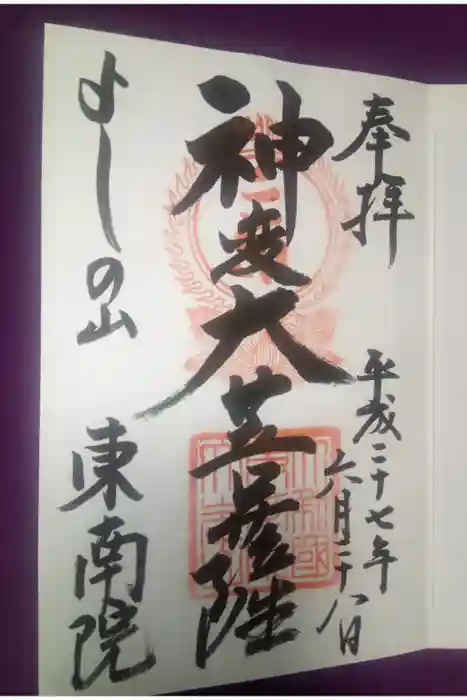 奉拝
平成二十七年
六月二十八日
神変大菩薩
よしの山 東南院